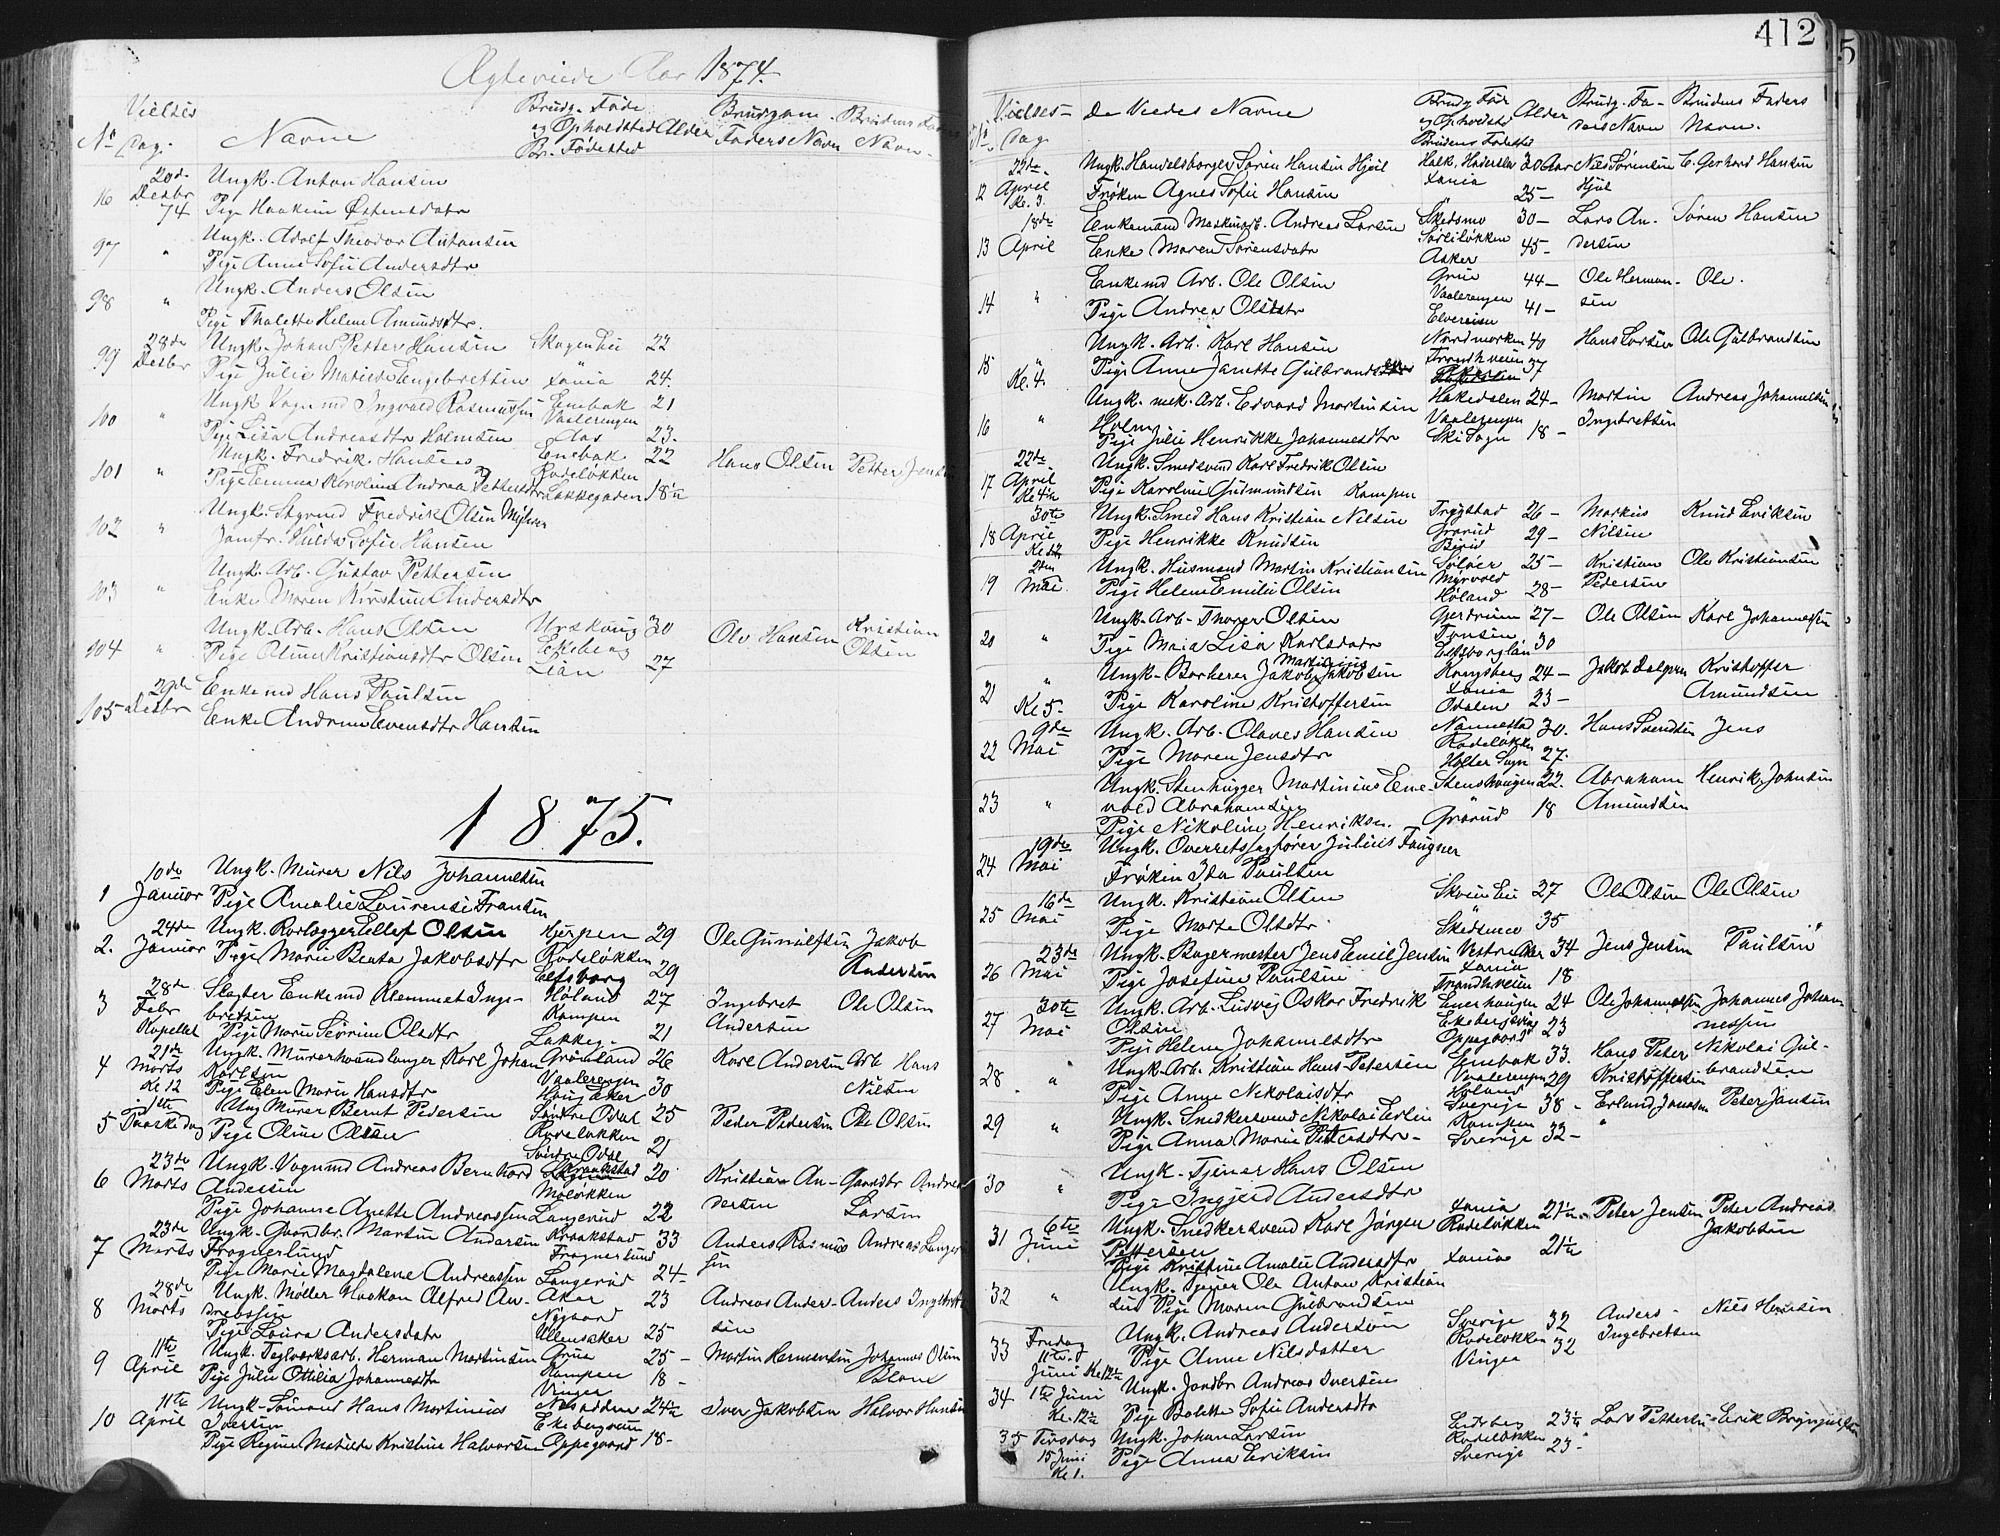 Ægteviede Aar 1874.
Vielses Brudg. Føde Brudgom. Brudens Faders
No Dag. Navne og Opholdsted Alder Faders Navn Navn.
Br. Fødested
20de Ungk. Anton Hansen
96 Desbr 74 Pige Haakine Østensdatr
Ungk. Adolf Theodor Antonsen
97 " Pige Anne Sofie Andersdtr
Ungk. Anders Olsen
98 " Pige Thalette Helene Amundsdtr.
28de Ungk. Johan Petter Hansen Skogen Eie 22
99 Desbr Pige Julie Matilde Engebretsen Xania 24.
Ungk Vognmd Ingvald Rasmussen Enebak 21
100 " Vaalerengen
Pige Lisa Andreasdtr Holmsen Aas 23.
Ungk. Fredrik Hansen Enebak 22 Hans Olsen Petter Jensen
101 " Rodeløkken
Pige Emma Karoline Andrea Pettersdtr Lakkegaden 18½
Ungk. Styrmd Fredrik Olsen
102 " Jomfr. Hulda Sofie Hansen
Ungk. Arb. Gustav Pettersen
103 " Enke Maren Kirstine Andersdtr
Ungk. Arb. Hans Olsen Urskoug 30 Ole Hansen Kristian
104 " Ekeberg Olsen
Pige Oline Kristiansdtr Olsen Lian 27
29de Enkemd Hans Paulsen
105 Desbr Enke Andrine Evensdtr Hansen
1875.
10de Ungk. Murer Nils Johannesen
1 Januar Pige Amalie Laurense Fransen
24de Ungk. Rørlægger Ellef Olsen Hjerpen 29 Ole Gunulfsen Jakob
2. Januar Pige Marie Beata Jakobsdtr Rodeløkken Andersen
Elfsborg 29
28de Slagter Enkemd Klemmet Inge- Høland 27 Ingebret Ole Olsen
3 Febr bretsen Kampen Andersen
Kapellet Pige Maria Severine Olsdtr Lakkeg. 21
21de Ungk. Murerhaandlanger Karl Johan Grønland 26 Karl Andersen Arb Hans
4 Marts Karlsen Vaalerengen Nilsen
Kl 12 Pige Elen Marie Hansdtr Haugaker 30
1ste Ung Murer Bernt Pedersen Søndre Odal 25 Peder Pedersen Ole Olsen
5 Paaskedag Pige Oline Olsen Rodeløkken
Søndre Odal 21
23de Ungk. Vognmd Andreas Bernhard Kraakstad 20 Kristian An- Gaardbr Andreas
6 Marts Andersen Moløkken dersen Larsen
Pige Johanne Anette Andreassen Langerud 22
23de Ungk. Gaardbr. Martin Andersen Kraakstad 33 Anders Rasmus Andreas Langer
7 Marts Frognerlund Frognerlund sen
Pige Marie Magdalene Andreassen Langerud 24
28de Ungk. Møller Haakon Alfred An- Aker 23 Andreas Ander- Anders Ingebrets
8 Marts dreassen Nygaard sen
Pige Laura Andersdatr Ullensaker 25
11te Ungk. Teglværksarb. Herman Martinsen Grue 25 - Martin Hermansen Johannes Olsen
9 April Pige Julie Ottilia Johannesdtr Kampen 18 -
Vinger
11te Ungk. Sømand Hans Martinius Nesodden 24½ Iver Jakobsen Halvor Hansen
10 April Iversen Ekebergveien
Pige Regine Matilde Kristine Halvorsen Oppegaard 18-
412
5
Vielses- De Viedes Navne Brudg. Før Alder Brudg. Fa- Brudens Faders
No Dag. og Opholdstd ders Navn Navn.
Brudens Fødested
22de Ungk. Handelsborger Søren Hansen Hjøil Halk, Haderslev 30 Aar Nils Sørensen C. Gerhard Hansen
12 April Frøken Agnes Sofie Hansen Xania 25- Hjøil
Kl. 3.
18de Enkemand Maskinarb. Andreas Larsen Skedsmo 30- Lars An- Søren Hansen
13 April Enke Maren Sørensdatr Sørliløkken 45- dersen
Asker
Enkemd Arb. Ole Olsen Grue 44- Ole Herman- Ole.
14 " Pige Andrea Olsdatr Vaalerengen 41- sen
Elverum
Ungk. Arb. Karl Hansen Nordmarken 40 Hans Larsen Ole Gulbrandsen
15 " Pige Anne Janette Gulbrandsdtr Trondhveien 37
Kl. 4.
Ungk. mek. Arb. Edvard Martinsen Hakedalen 24- Martin Andreas Johannesen
16 " Holm Vaalerengen Ingebretsen
Pige Julie Henrikke Johannesdtr Ski Sogn 18 -
22de Ungk. Smedsvend Karl Fredrik Olsen
17 April Pige Karoline Gudmundsen Kampen
Kl 4½
30te Ungk. Smed Hans Kristian Nilsen Trygstad 26- Markus Knud Eriksen
18 April Pige Henrikke Knudsen Grorud 29- Nilsen
Birid
2den Ungk. Husmand Martin Kristiansen Solør 25- Kristian Ole Kristiansen
19 Mai Pige Helene Emilie Olsen Myrvold Pedersen
Høland 28-
Ungk. Arb. Thorer Olsen Gjerdrum 27- Ole Olsen Karl Johannessen
20 " Pige Maia Lisa Karlsdatr Tønsen
Elfsborglän 30
Ungk- Barberer Jakob Martinius Jakobsen Kongsberg 24- Jakob Kristoffer
21 " Xania Amundsen
Kl 5- Pige Karoline Kristoffersen Odalen 23-
9de Ungk. Arb. Olaves Hansen Nannestad 30. Hans Svendsen Jens
22 Mai Rodeløkken
Pige Maren Jensdtr Holter Sogn 27.
Ungk. Stenhugger Martinius Ene- Stenshaugen 22. Abraham Henrik Johnsen
23 " vold Abrahamsen Amundsen
Pige Nikoline Henriksen. Grorud 18
19de Ungk. Overretssagfører Julius Faugner
24 Mai Frøken Ida Paulsen
16de Ungk. Kristian Olsen Skoien Eie 27 Ole Olsen Ole Olsen
25 Mai Pige Marte Olsdtr Skedsmo 35
23de Ungk. Bagermester Jens Emil Jensen Vestre Aker 34 Jens Jensen Paulsen
26 Mai Pige Josefine Paulsen Xania 18
Trondhveien
30te Ungk. Arb. Ludvig Oskar Fredrik Enerhaugen 24 Ole Johannessen Johannes Johan-
27 Mai Olsen Ekebergsveien nessen
Pige Helene Johannesdtr Oppegaard 23
Ungk. Arb. Kristian Hans Petersen Enebak 33. Hans Peter Nikolai Gul-
28 " Vaalerengen Kristoffersen brandsen
Pige Anne Nikolaisdtr Høland 29
Ungk. Snedkersvend Nikolai Erlin Sverige 38 - Erlund Jonsson Peter Jansen
29 " Kampen "
Pige Anna Marie Petersdtr- Sverige 32-
Ungk- Tjener Hans Olsen
30 " Pige Ingjerd Andersdtr
6te Ungk- Snedkersvend Karl Jørgen Xania 21½ Peter Jensen Peter Andreas
31 Juni Pettersen Rodeløkken Jakobsen
Pige Kristine Amalie Andersdtr Xania 21½
Ungk. Tjener Ole Anton Kristian
32 " sen Pige Maren Gulbrandsen
Ungk. Andreas Anderson Sverige 32 Anders - Nils Hansen
33 Fredag Rodeløkken Ingebretsen
11te Pige Anne Nilsdatter Vinger 32
Juni Kl. 12½
34 1te Juni Ungk. Jordbr Andreas Iversen
Kl. 12½ Pige Bolette Sofie Andersdtr
35 Tirsdag Ungk. Johan Larsen Eidsberg 23½ Lars Pettersen Erik Bryngelsen
15 Juni Rodeløkken
Kl 1. Pige Anna Eriksen Sverige 23-